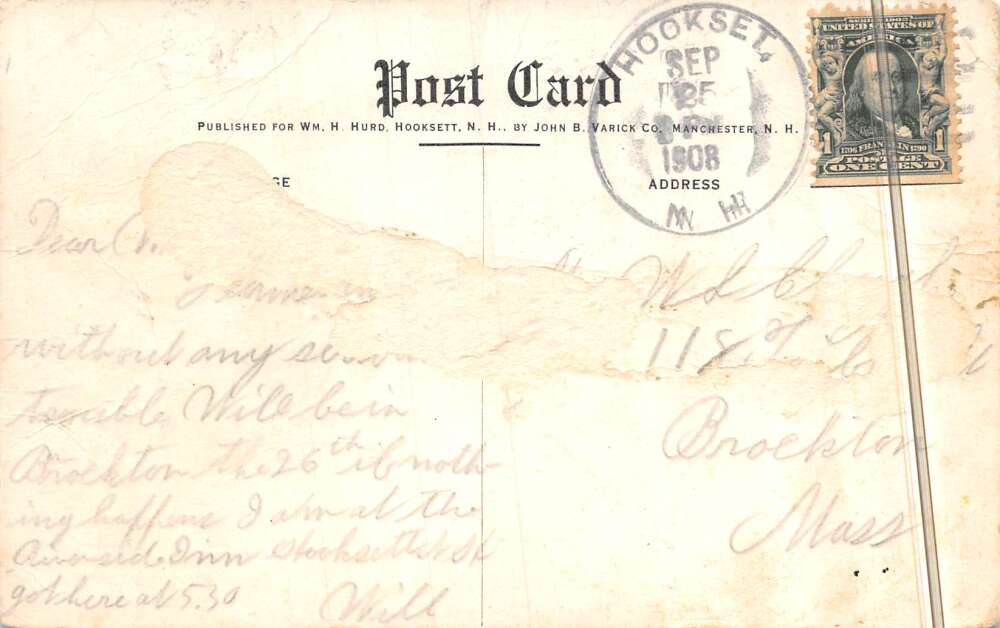 Post Card
PUBLISHED FOR WM. H. HURD, HOOKSETT, N. H., BY JOHN B. VARICK CO. MANCHESTER, N. H.
GE
ADDRESS
HOOKSET
SEP
25
1908
N H
SERIES 1902
UNITED STATES OF
AMERICA
1706 FRANKLIN 1790
1 1
POSTAGE
ONE CENT
Dear
came
without any
trouble Will be in
Brockton the 26th if noth-
ing happens I am at the
Riverside Inn Hooksett N H
got here at 5.30
Will
W L
118
Brockton
Mass